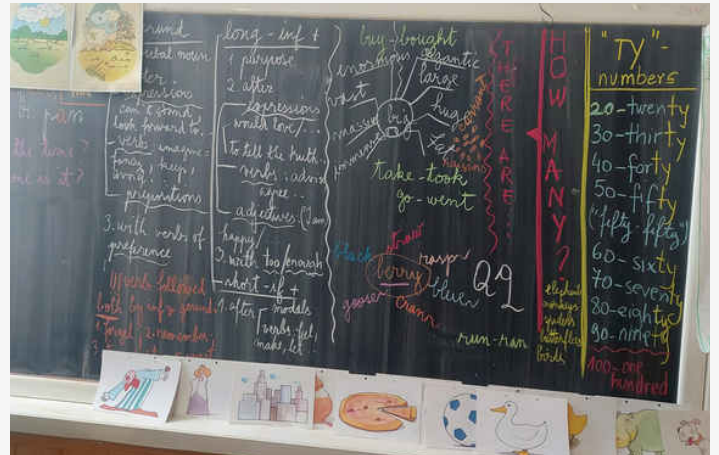 verbal noun
can't stand
look forward to...
verbs imagine
fancy, keep,
prepositions
3. with verbs of
preference
verbs followed
both by inf & gerund
forget, 2. remember
long-inf +
1 purpose
2 after
expressions
would love/...
to tell the truth...
verbs: advise
agree...
adjectives: (I am
happy)
3. with too/enough
short-inf +
1. after
modals
verbs: feel,
make, let...
buy-bought
enormous
gigantic
large
vast
big
hug
massive
immense
currant
raisins
take-took
go-went
black
straw
rasp
berry
goose
cran
blue
QQ
run-ran
THERE ARE
HOW MANY?
elephants
monkeys
spiders
butterflies
birds
"TY"-
numbers
20-twenty
30-thirty
40-forty
50-fifty
("fifty-fifty")
60-sixty
70-seventy
80-eighty
90-ninety
100-one
hundred